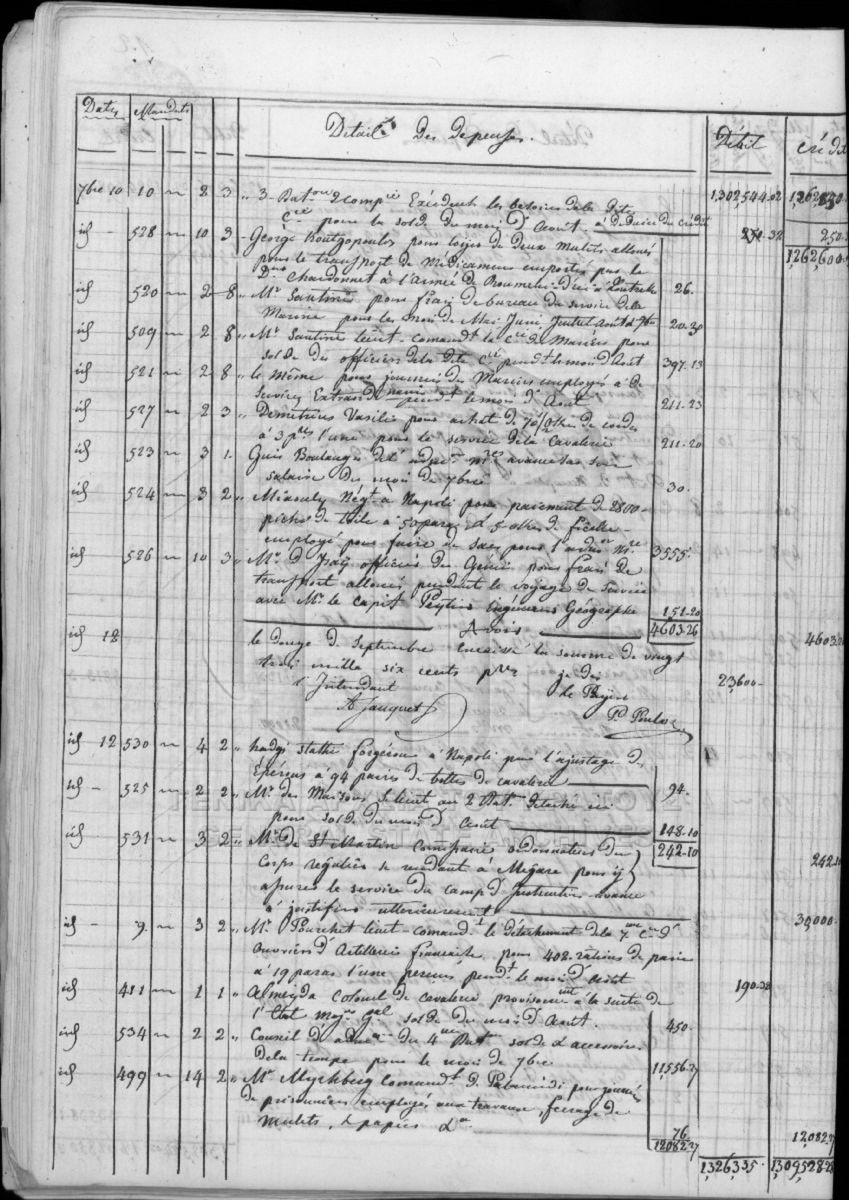 Dates Mandats Détail des dépenses. Débit Crédit
7bre 10 10 " 2 3 " 3e Baton 2 Compie Excédent des besoins de la dite 1,302,544.02
Cie pour la solde du mois d'Aout à Déduire du Crédit 250.32
id - 528 " 10 3 - George Koutzopoulos pour loyer de deux mulets alloués 1,262,600
pour le transport de Médicamens emportés par le
Dr Chardonnet à l'Armée de Roumelie 26.
id 520 " 2 8 " Mr Santini pour frais de bureau du service de la
Marine pour les mois de Mai Juin Juillet Aout & 7bre 20.30
id 509 " 2 8 " Mr Santini lieut. comandt la Cie de Marins pour
solde des officiers de la dite Cie pendt le mois d'Aout 397.13
id 521 " 2 8 " le même pour journées des Marins employés à des
Services Extraordinaires pendt le mois d'Aout 211.23
id 527 " 2 3 " Demetrius Vasilis pour achat de 70 1/2 okes de cordes
à 3 pres l'une pour le service de la Cavalerie 211.20
id 523 " 3 1. Guis Boulanger avance sur son
salaire du mois de 7bre 30.
id 524 " 3 2 " Miaouly Négt à Napoli pour paiement de 2800
pichs de toile à 50 paras & 5 okes de ficelle
employé pour faire des sacs pour l'ordre 3555.
id 526 " 10 3 " Mr officier du Génie pour frais de
transport alloués pendant le voyage de service
avec Mr le Capit Peytier Ingénieur Géographe 151.20
Avoir 4603.26
id 12 le douze de Septembre encaissé la somme de vingt 4603.26
trois mille six cents pres je dis 23,600
l'Intendant Le Payeur
A Jauquet
id 12 530 " 4 2 " hadgi Stathi forgeron à Napoli pour l'ajustage des
Éperons à 94 paires de bottes de cavalerie 94.
id - 525 " 2 2 " Mr des Maisons S. lieut au 2 Batn détaché ici
pour solde du mois d'Aout 148.10
id 531 " 3 2 " Mr de St Martin Comissaire ordonnateur du 242.10
Corps régulier se rendant à Mégare pour y 242.10
apurer le service du camp d'Instruction avance
à justifier ulterieurement 30,000
id - 9. " 3 2 " Mr Pourchet lieut. comandt le détachement de la 7me Cie d'
ouvriers d'Artillerie francaise, pour 402 rations de pain
à 19 paras l'une perçues pendt le mois d'Aout 190.38
id 411 " 1 1 " Almeyda Colonel de Cavalerie provisoirement à la suite de
l'Etat Major Gal solde du mois d'Aout. 450.
id 534 " 2 2 " Conseil d'admon du 4me Batn solde & accessoires
de la troupe pour le mois de 7bre 11,556.37
id 499 " 14 2 " Mr Myrhberg Comandt de Palamidi pour journées
de prisonniers employés aux travaux, ferrage de
Mulets, & papier &a 76
12082.37 12,082.37
1,326,335. 1,309,528.28